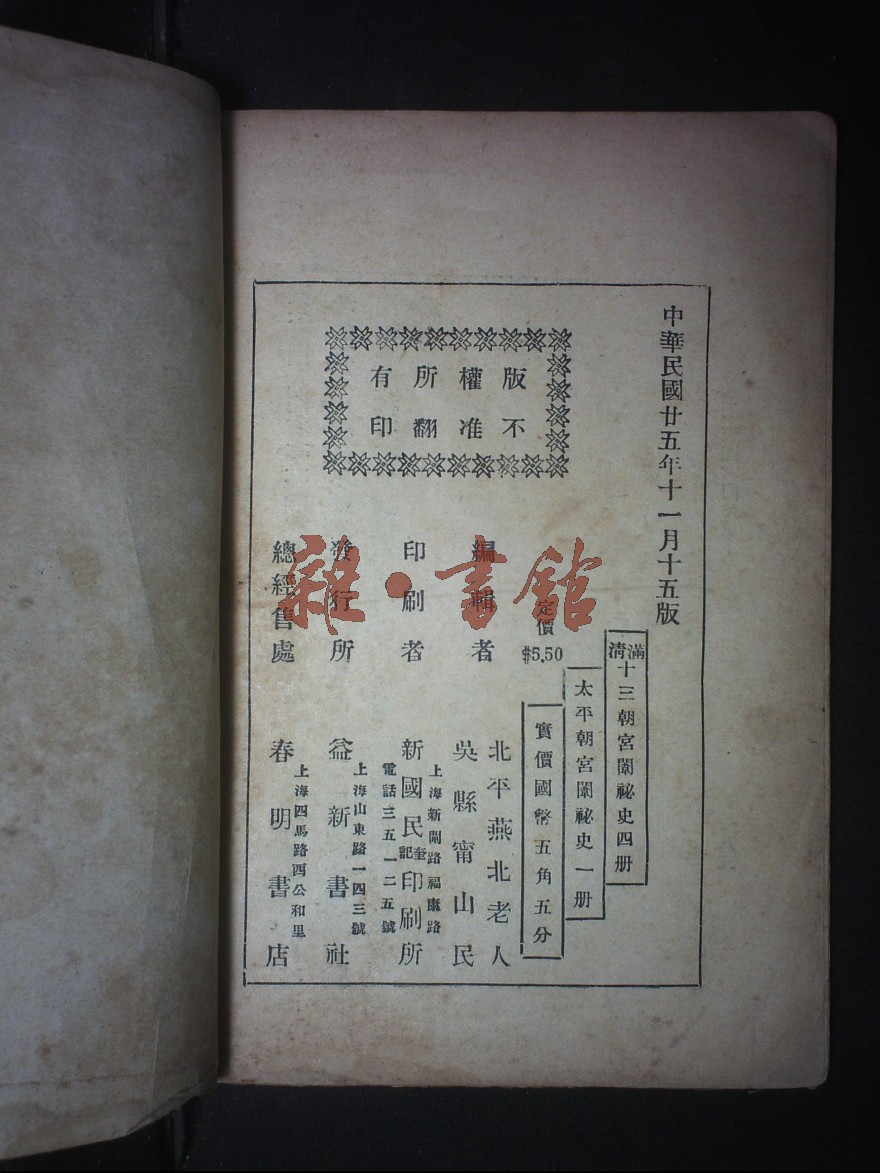 中華民國廿五年十一月十五版
滿清十三朝宮闈祕史四册
太平朝宮闈祕史一册
定價
$5.50
實價國幣五角五分
版權所有
不准翻印
編輯者
北平燕北老人
吳縣甯山民
印刷者
上海新閘路福康路
新國民奎記印刷所
電話三五一二五號
發行所
上海山東路一四三號
益新書社
總經售處
上海四馬路西公和里
春明書店
雜·書館